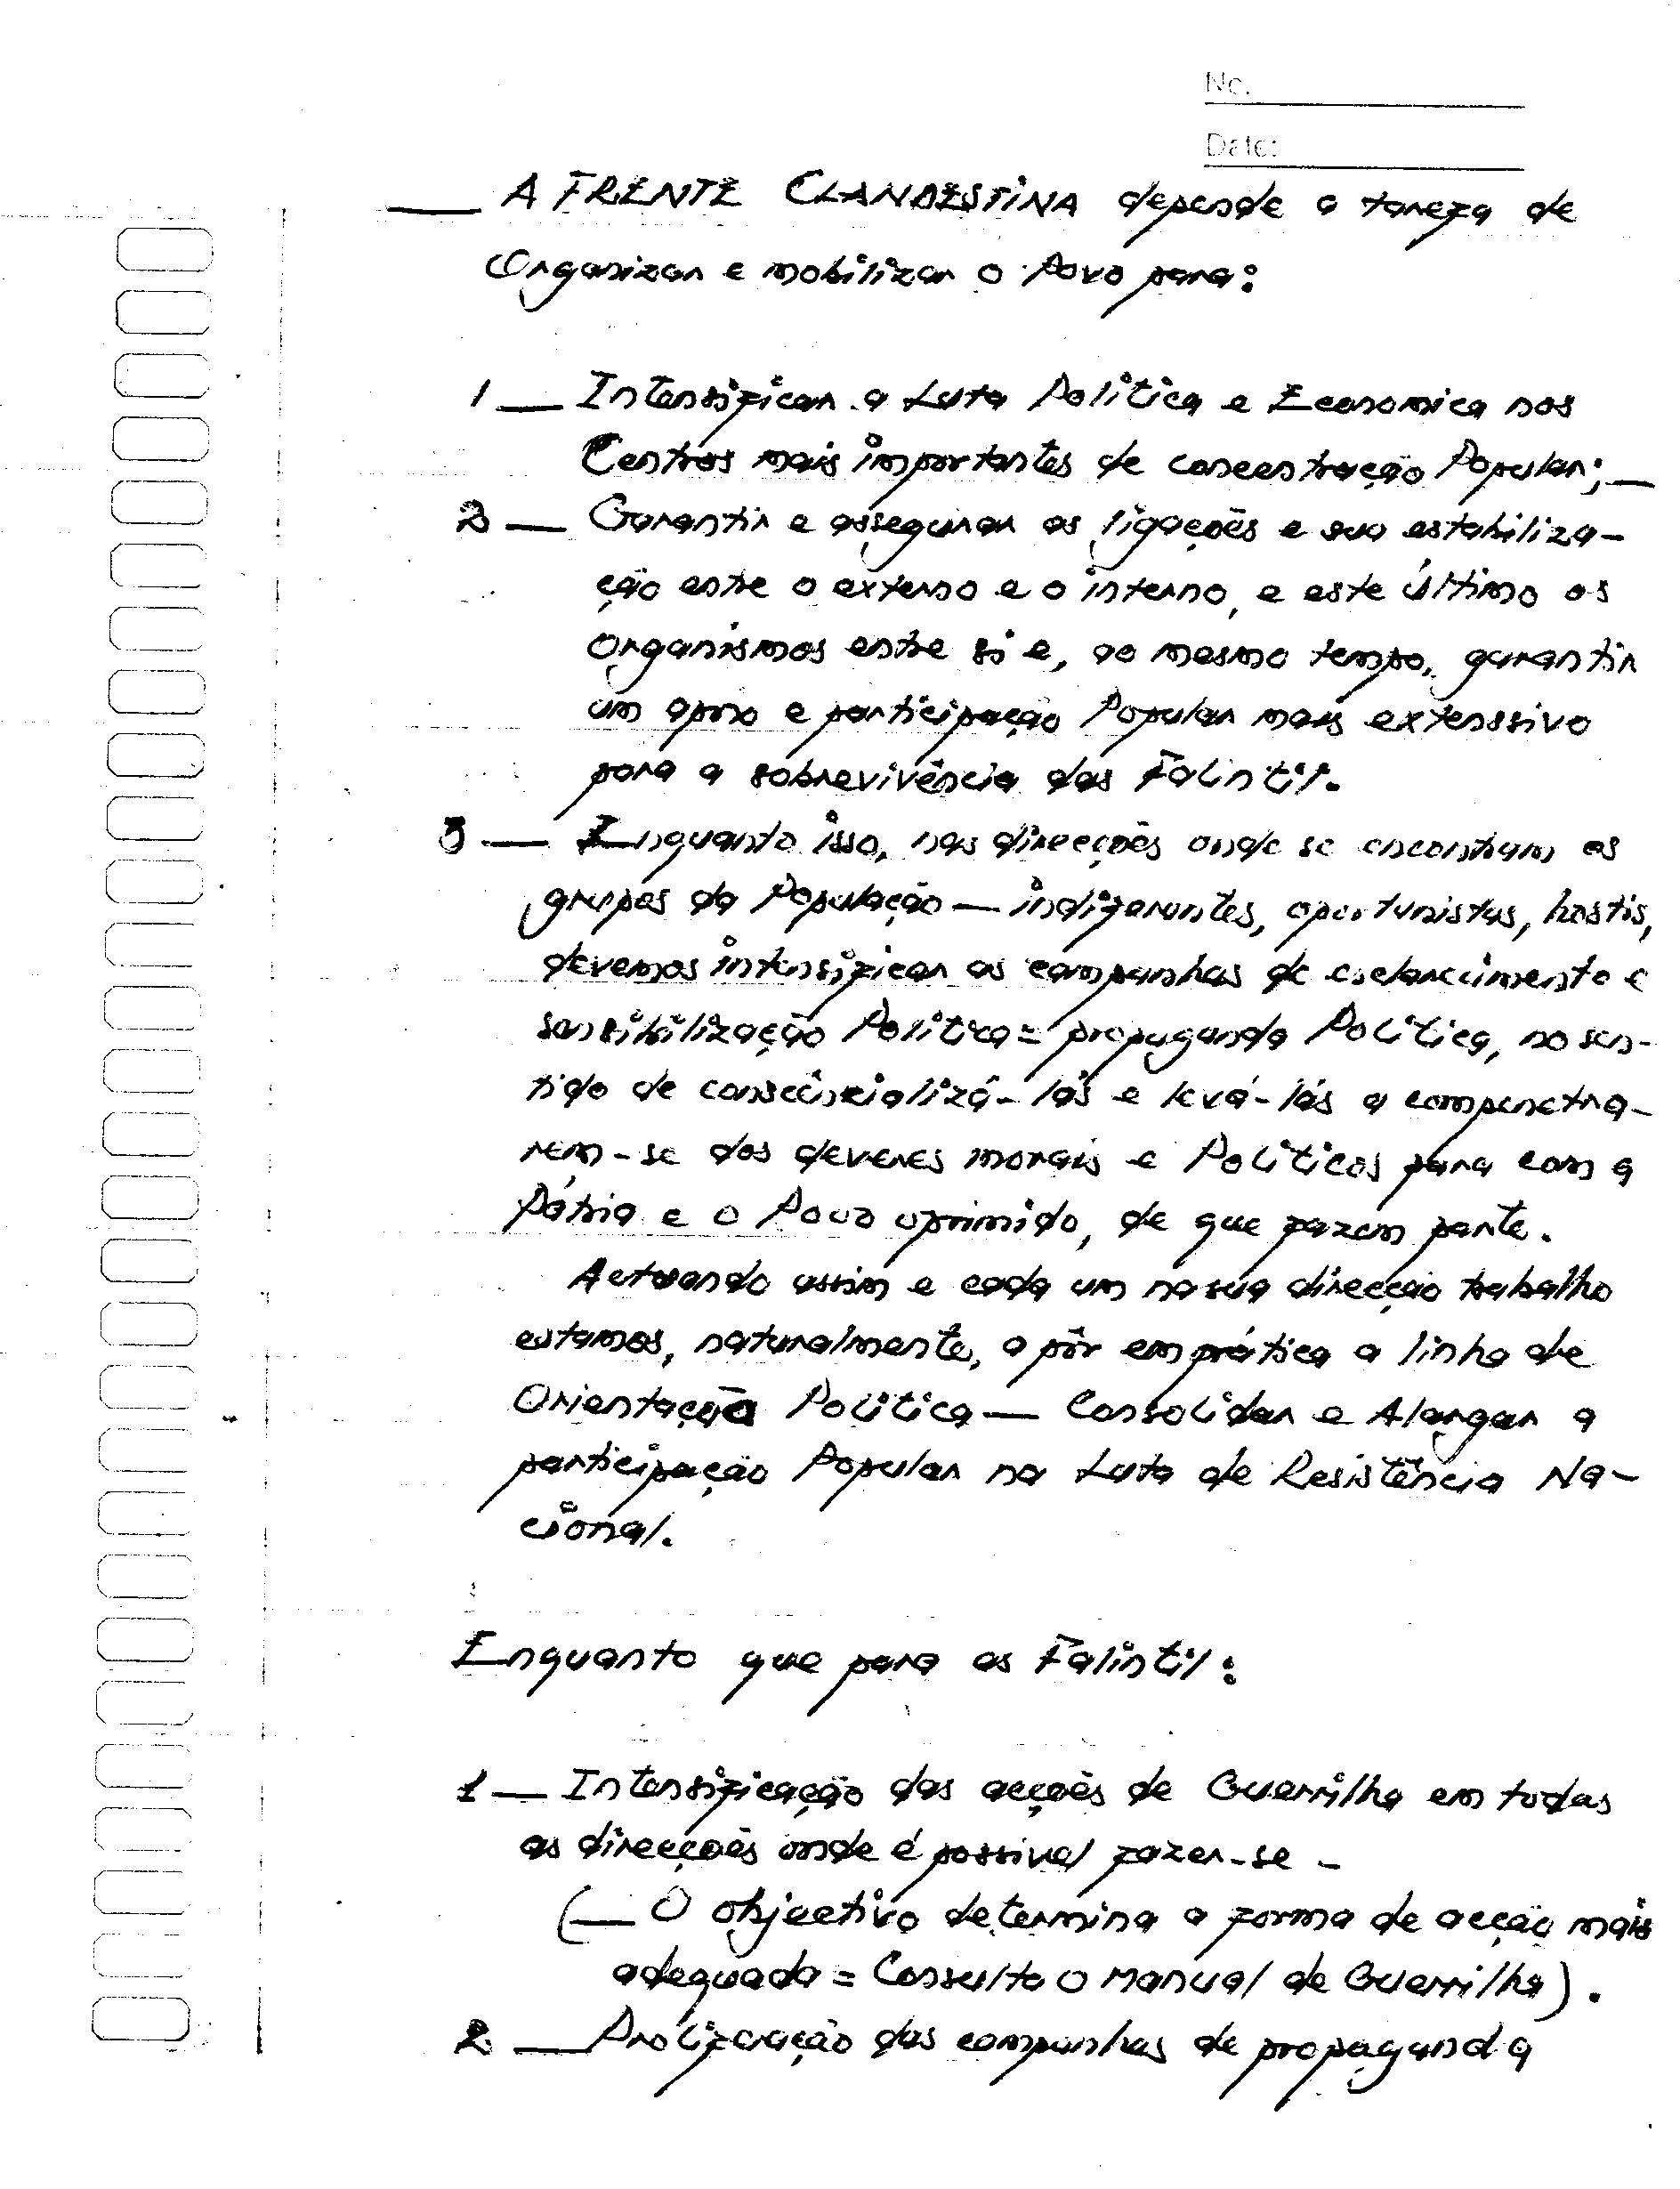 No.
Date:
— A FRENTE CLANDESTINA depende a tarefa de
Organizar e mobilizar o Povo para:
1 — Intensificar a Luta Política e Economica nos
Centros mais importantes de concentração Popular; —
2 — Garantir e assegurar as ligações e sua estabiliza-
ção entre o externo e o interno, e este último os
organismos entre si e, ao mesmo tempo, garantir
um apoio e participação Popular mais extenssivo
para a sobrevivência das Falintil.
3 — Enquanto isso, nas direcções onde se encontram os
grupos da População — indiferentes, oportunistas, hostis,
devemos intensificar as campanhas de esclarecimento e
sensibilização Política = propaganda Política, no sen-
tido de consciencializá-lás e levá-lás a compenetra-
rem-se dos deveres morais e Políticos para com a
Pátria e o Povo oprimido, de que fazem parte.
Actuando assim e cada um na sua direcção trabalho
estamos, naturalmente, a pôr em prática a linha de
Orientação Política — Consolidar e Alargar a
participação Popular na Luta de Resistência Na-
cional.
Enquanto que para as Falintil:
1 — Intensificação das acções de Guerrilha em todas
as direcções onde é possivel fazer-se -
(— O objectivo determina a forma de acção mais
adequada = Consulta o Manual de Guerrilha).
2 — Proliferação das campanhas de propaganda